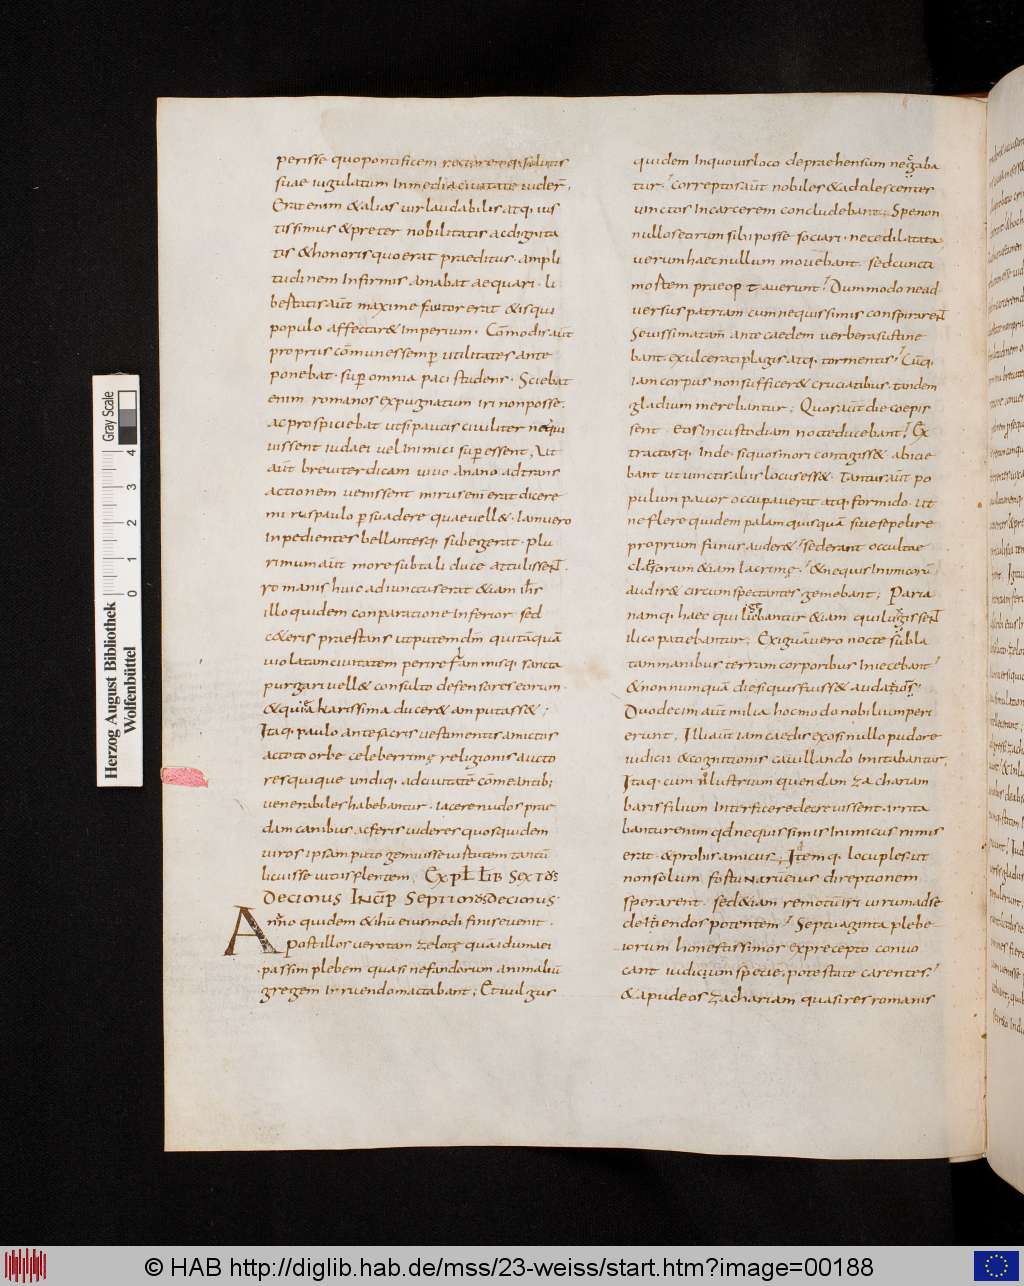 perisse quo pontificem rectoremq; salutis
suae iugulatum In media ciuitate uider̄.
Erat enim & alias uir laudabilis atq; ius
tissimus & preter nobilitatis ac dignita
tis & honoris quo erat praeditus. ampli
tudinem Infirmis amabat aequari. li
bertatis aūt maxime fautor erat & is qui
populo affectar& Imperium. Cōmodis aūt
propriis cōmunes semp̄ utilitates ante
ponebat. sup̄ omnia paci studens. Sciebat
enim romanos expugnatum iri non posse.
ac prospiciebat ut si paucis ciuiliter nequi
uissent iudaei uel Inimici sup̄essent, Ut
aūt breuiter dicam uiuo anano ad trans
actionem uenissent mirus enī erat dicere
populo p̄suadere quae uell&. Iam uero
Inpedientes bellantesq; subegerat. plu
rimum aūt more sub tali duce attulissenṫ.
romanis huic adiunctus erat & iam ih̄s
illo quidem conparatione Inferior sed
c&eris praestans ut putem dm̄ quitāquā
uiolatam ciuitatem perire flammisq; sancta
purgari uell& consulto defensores eorum.
& quia karissima ducer& amputass&;
Itaq; paulo ante sacris uestimentis amictus
ac toto orbe celeberrimę religionis aucto
res quique undiq; ad ciuitatē cōmeantibꝫ
uenerabiles habebantur. iacere nudos prae
dam canibus ac feris uideres quos quidem
uiros ipsam puto gemuisse uirtutem tantū
licuisse uitiis flentem, Expl̄ Lib Sextus
Decimus Incip̄ Septimus Decimus
Anno quidem & ihū eius modi finis euenit.
post illos uero tam zelotę quā idumaei
passim plebem quasi nefandorum animaliū
gregem Irruendo mactabant; Et uulgus
quidem Inquouis loco depraehensum negaba
tur. correptos aūt nobiles & adulescentes
uinctos In carcerem concludebant; Spe non
nullos eorum sibi posse sociari. nece dilatata
uerum haec nullum mouebant. sed cuncti
mortem praeoptauerunt. Dummodo nead
uersus patriam cum nequissimis conspirarenṫ
Seuissima tam̄ ante caedem uerbera sustine
bant. exulcerati plagis atq; tormentis. Cūq;
iam corpus non suffic&er& cruciatibus. tandem
gladium merebantur; Quos aūt die coepis
sent. eos In custodiam nocte ducebant. Ex
tractosq; Inde. si quos mori contigiss& abicie
bant ut uinctis aliis locus ess&. Tantus aūt po
pulum pauor occupauerat atq; formido. ut
ne flere quidem palam quisquā siue sepelire
proprium funus auder&. sed erant occultae
clausorum & iam lacrimę. & ne quis Inimicorū
audir& circumspectantes gemebant; Paria
namq; haec qui lugebantur & iam qui luxissenṫ
ilico patiebantur; Exiguā uero nocte subla
tam manibus terram corporibus Iniecebant
& non numquā die si quis fuiss& audatior.
Duodecim aūt milia hoc modo nobilium peri
erunt; Illi aūt iam caedis exosi nullo pudore
iudicii & cognitionis cauillando Imitabantur,
Itaq; cum Illustrium quendam zachariam
baris filium Interficere decreuissent. arrita
bantur enim qd nequissimis Inimicus nimis
erat & probis amicus; Itemq; locuples. ut
non solum fortunarum eius direptionem
sperarent. sed & iam remotū iri uirum ad se
defendos potentem. Septuaginta plebe
iorum honestissimos ex precepto conuo
cant iudicium specie. potestate carentes.
& apud eos zachariam quasi res romanis
Herzog August Bibliothek
Wolfenbüttel
Gray Scale
0 1 2 3 4
© HAB http://diglib.hab.de/mss/23-weiss/start.htm?image=00188